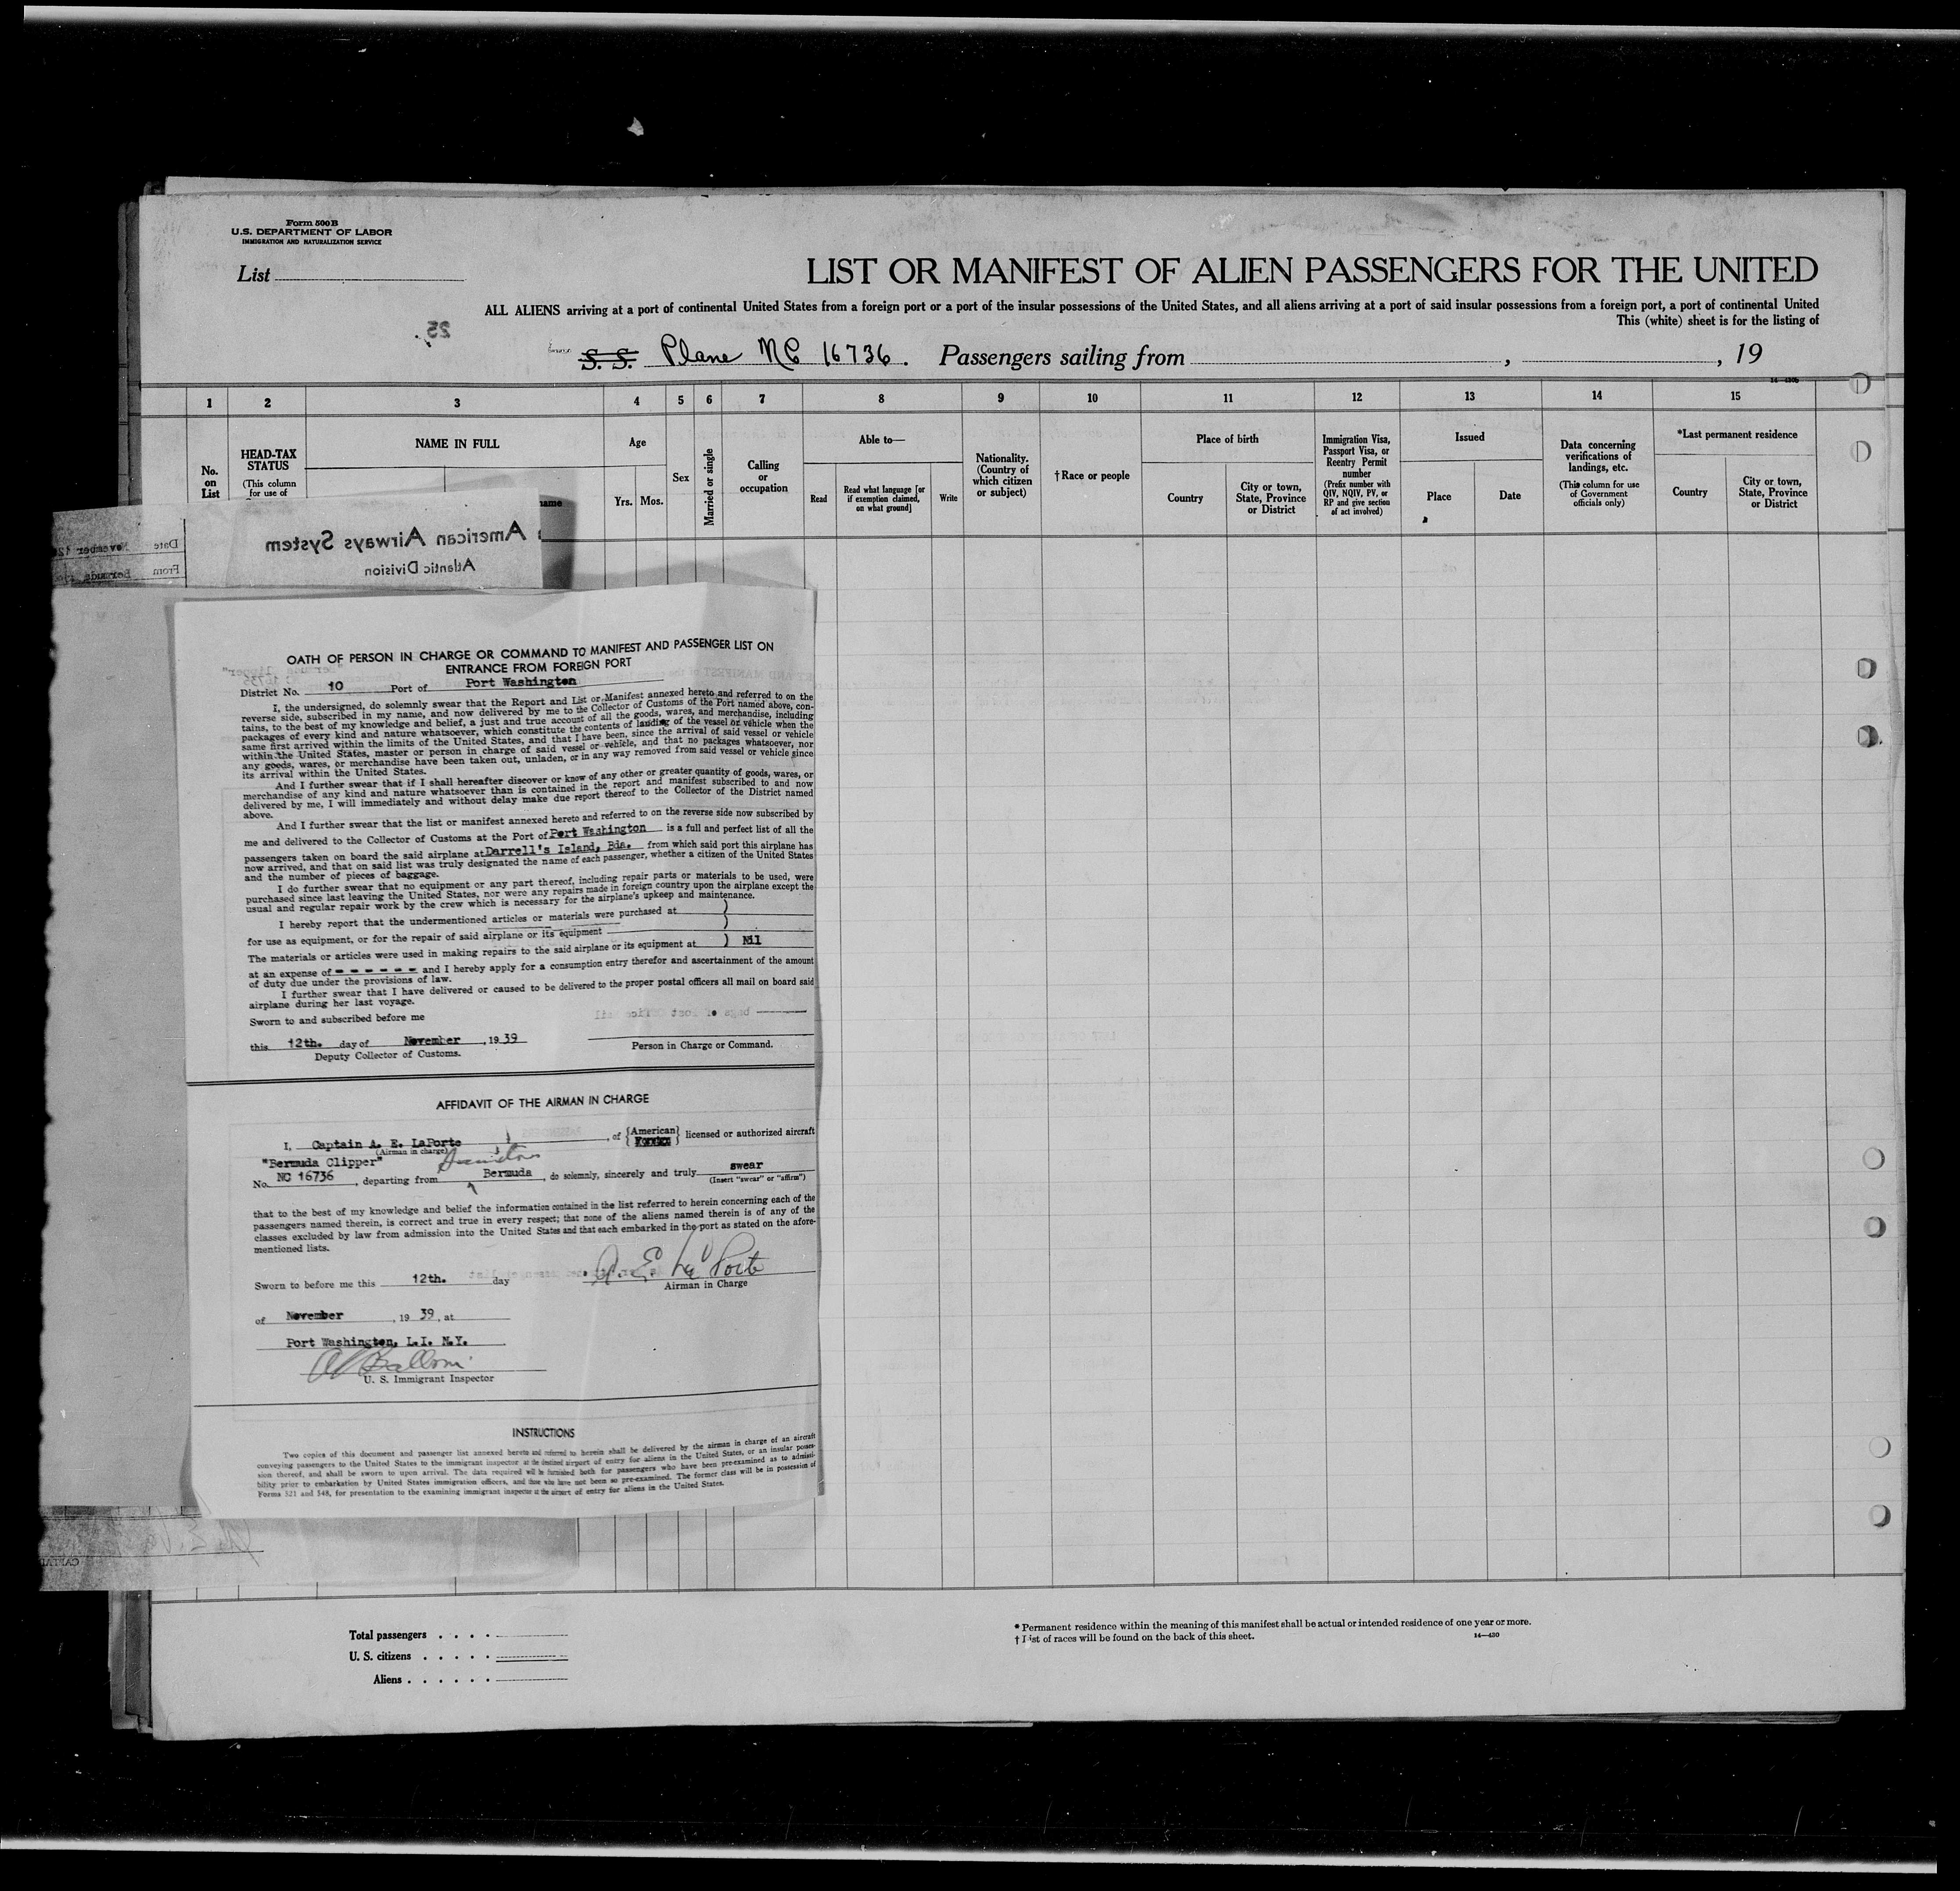 Form 500B
U.S. DEPARTMENT OF LABOR
IMMIGRATION AND NATURALIZATION SERVICE
List
LIST OR MANIFEST OF ALIEN PASSENGERS FOR THE UNITED
ALL ALIENS arriving at a port of continental United States from a foreign port or a port of the insular possessions of the United States, and all aliens arriving at a port of said insular possessions from a foreign port, a port of continental United
This (white) sheet is for the listing of
25
S. S. Plane NC 16736. Passengers sailing from , , 19
14—430b
1 2 3 4 5 6 7 8 9 10 11 12 13 14 15
No. on List
HEAD-TAX STATUS
(This column for use of
NAME IN FULL
name
Age
Yrs. Mos.
Sex
Married or single
Calling or occupation
Able to—
Read
Read what language [or if exemption claimed, on what ground]
Write
Nationality. (Country of which citizen or subject)
† Race or people
Place of birth
Country
City or town, State, Province or District
Immigration Visa, Passport Visa, or Reentry Permit number
(Prefix number with QIV, NQIV, PV, or RP and give section of act involved)
Issued
Place
Date
Data concerning verifications of landings, etc.
(This column for use of Government officials only)
*Last permanent residence
Country
City or town, State, Province or District
American Airways System
Atlantic Division
Date November 12
From Bermuda
OATH OF PERSON IN CHARGE OR COMMAND TO MANIFEST AND PASSENGER LIST ON
ENTRANCE FROM FOREIGN PORT
District No. 10 Port of Port Washington
I, the undersigned, do solemnly swear that the Report and List or Manifest annexed hereto and referred to on the
reverse side, subscribed in my name, and now delivered by me to the Collector of Customs of the Port named above, con-
tains, to the best of my knowledge and belief, a just and true account of all the goods, wares, and merchandise, including
packages of every kind and nature whatsoever, which constitute the contents of landing of the vessel or vehicle when the
same first arrived within the limits of the United States, and that I have been, since the arrival of said vessel or vehicle
within the United States, master or person in charge of said vessel or vehicle, and that no packages whatsoever, nor
any goods, wares, or merchandise have been taken out, unladen, or in any way removed from said vessel or vehicle since
its arrival within the United States.
And I further swear that if I shall hereafter discover or know of any other or greater quantity of goods, wares, or
merchandise of any kind and nature whatsoever than is contained in the report and manifest subscribed to and now
delivered by me, I will immediately and without delay make due report thereof to the Collector of the District named
above.
And I further swear that the list or manifest annexed hereto and referred to on the reverse side now subscribed by
me and delivered to the Collector of Customs at the Port of Port Washington is a full and perfect list of all the
passengers taken on board the said airplane at Darrell's Island, Bda. from which said port this airplane has
now arrived, and that on said list was truly designated the name of each passenger, whether a citizen of the United States
and the number of pieces of baggage.
I do further swear that no equipment or any part thereof, including repair parts or materials to be used, were
purchased since last leaving the United States, nor were any repairs made in foreign country upon the airplane except the
usual and regular repair work by the crew which is necessary for the airplane's upkeep and maintenance.
I hereby report that the undermentioned articles or materials were purchased at )
for use as equipment, or for the repair of said airplane or its equipment )
The materials or articles were used in making repairs to the said airplane or its equipment at ) Nil
at an expense of - - - - - - and I hereby apply for a consumption entry therefor and ascertainment of the amount
of duty due under the provisions of law.
I further swear that I have delivered or caused to be delivered to the proper postal officers all mail on board said
airplane during her last voyage.
Sworn to and subscribed before me
this 12th. day of November , 19 39
Deputy Collector of Customs.
Person in Charge or Command.
AFFIDAVIT OF THE AIRMAN IN CHARGE
I, Captain A. E. LaPorte , of {American} {Foreign} licensed or authorized aircraft
(Airman in charge)
"Bermuda Clipper"
Hamilton
No. NC 16736 , departing from Bermuda , do solemnly, sincerely and truly swear
(Insert "swear" or "affirm")
that to the best of my knowledge and belief the information contained in the list referred to herein concerning each of the
passengers named therein, is correct and true in every respect; that none of the aliens named therein is of any of the
classes excluded by law from admission into the United States and that each embarked in the port as stated on the afore-
mentioned lists.
Sworn to before me this 12th. day
A. E. La Porte
Airman in Charge
of November , 19 39, at
Port Washington, L.I. N.Y.
U. S. Immigrant Inspector
INSTRUCTIONS
Two copies of this document and passenger list annexed hereto and referred to herein shall be delivered by the airman in charge of an aircraft
conveying passengers to the United States to the immigrant inspector at the destined airport of entry for aliens in the United States, or an insular posses-
sion thereof, and shall be sworn to upon arrival. The data required will be furnished both for passengers who have been pre-examined as to admissi-
bility prior to embarkation by United States immigration officers, and those who have not been so pre-examined. The former class will be in possession of
Forms 521 and 548, for presentation to the examining immigrant inspector at the airport of entry for aliens in the United States.
Total passengers . . . .
U. S. citizens . . . . .
Aliens . . . . . .
* Permanent residence within the meaning of this manifest shall be actual or intended residence of one year or more.
† List of races will be found on the back of this sheet.
14—430